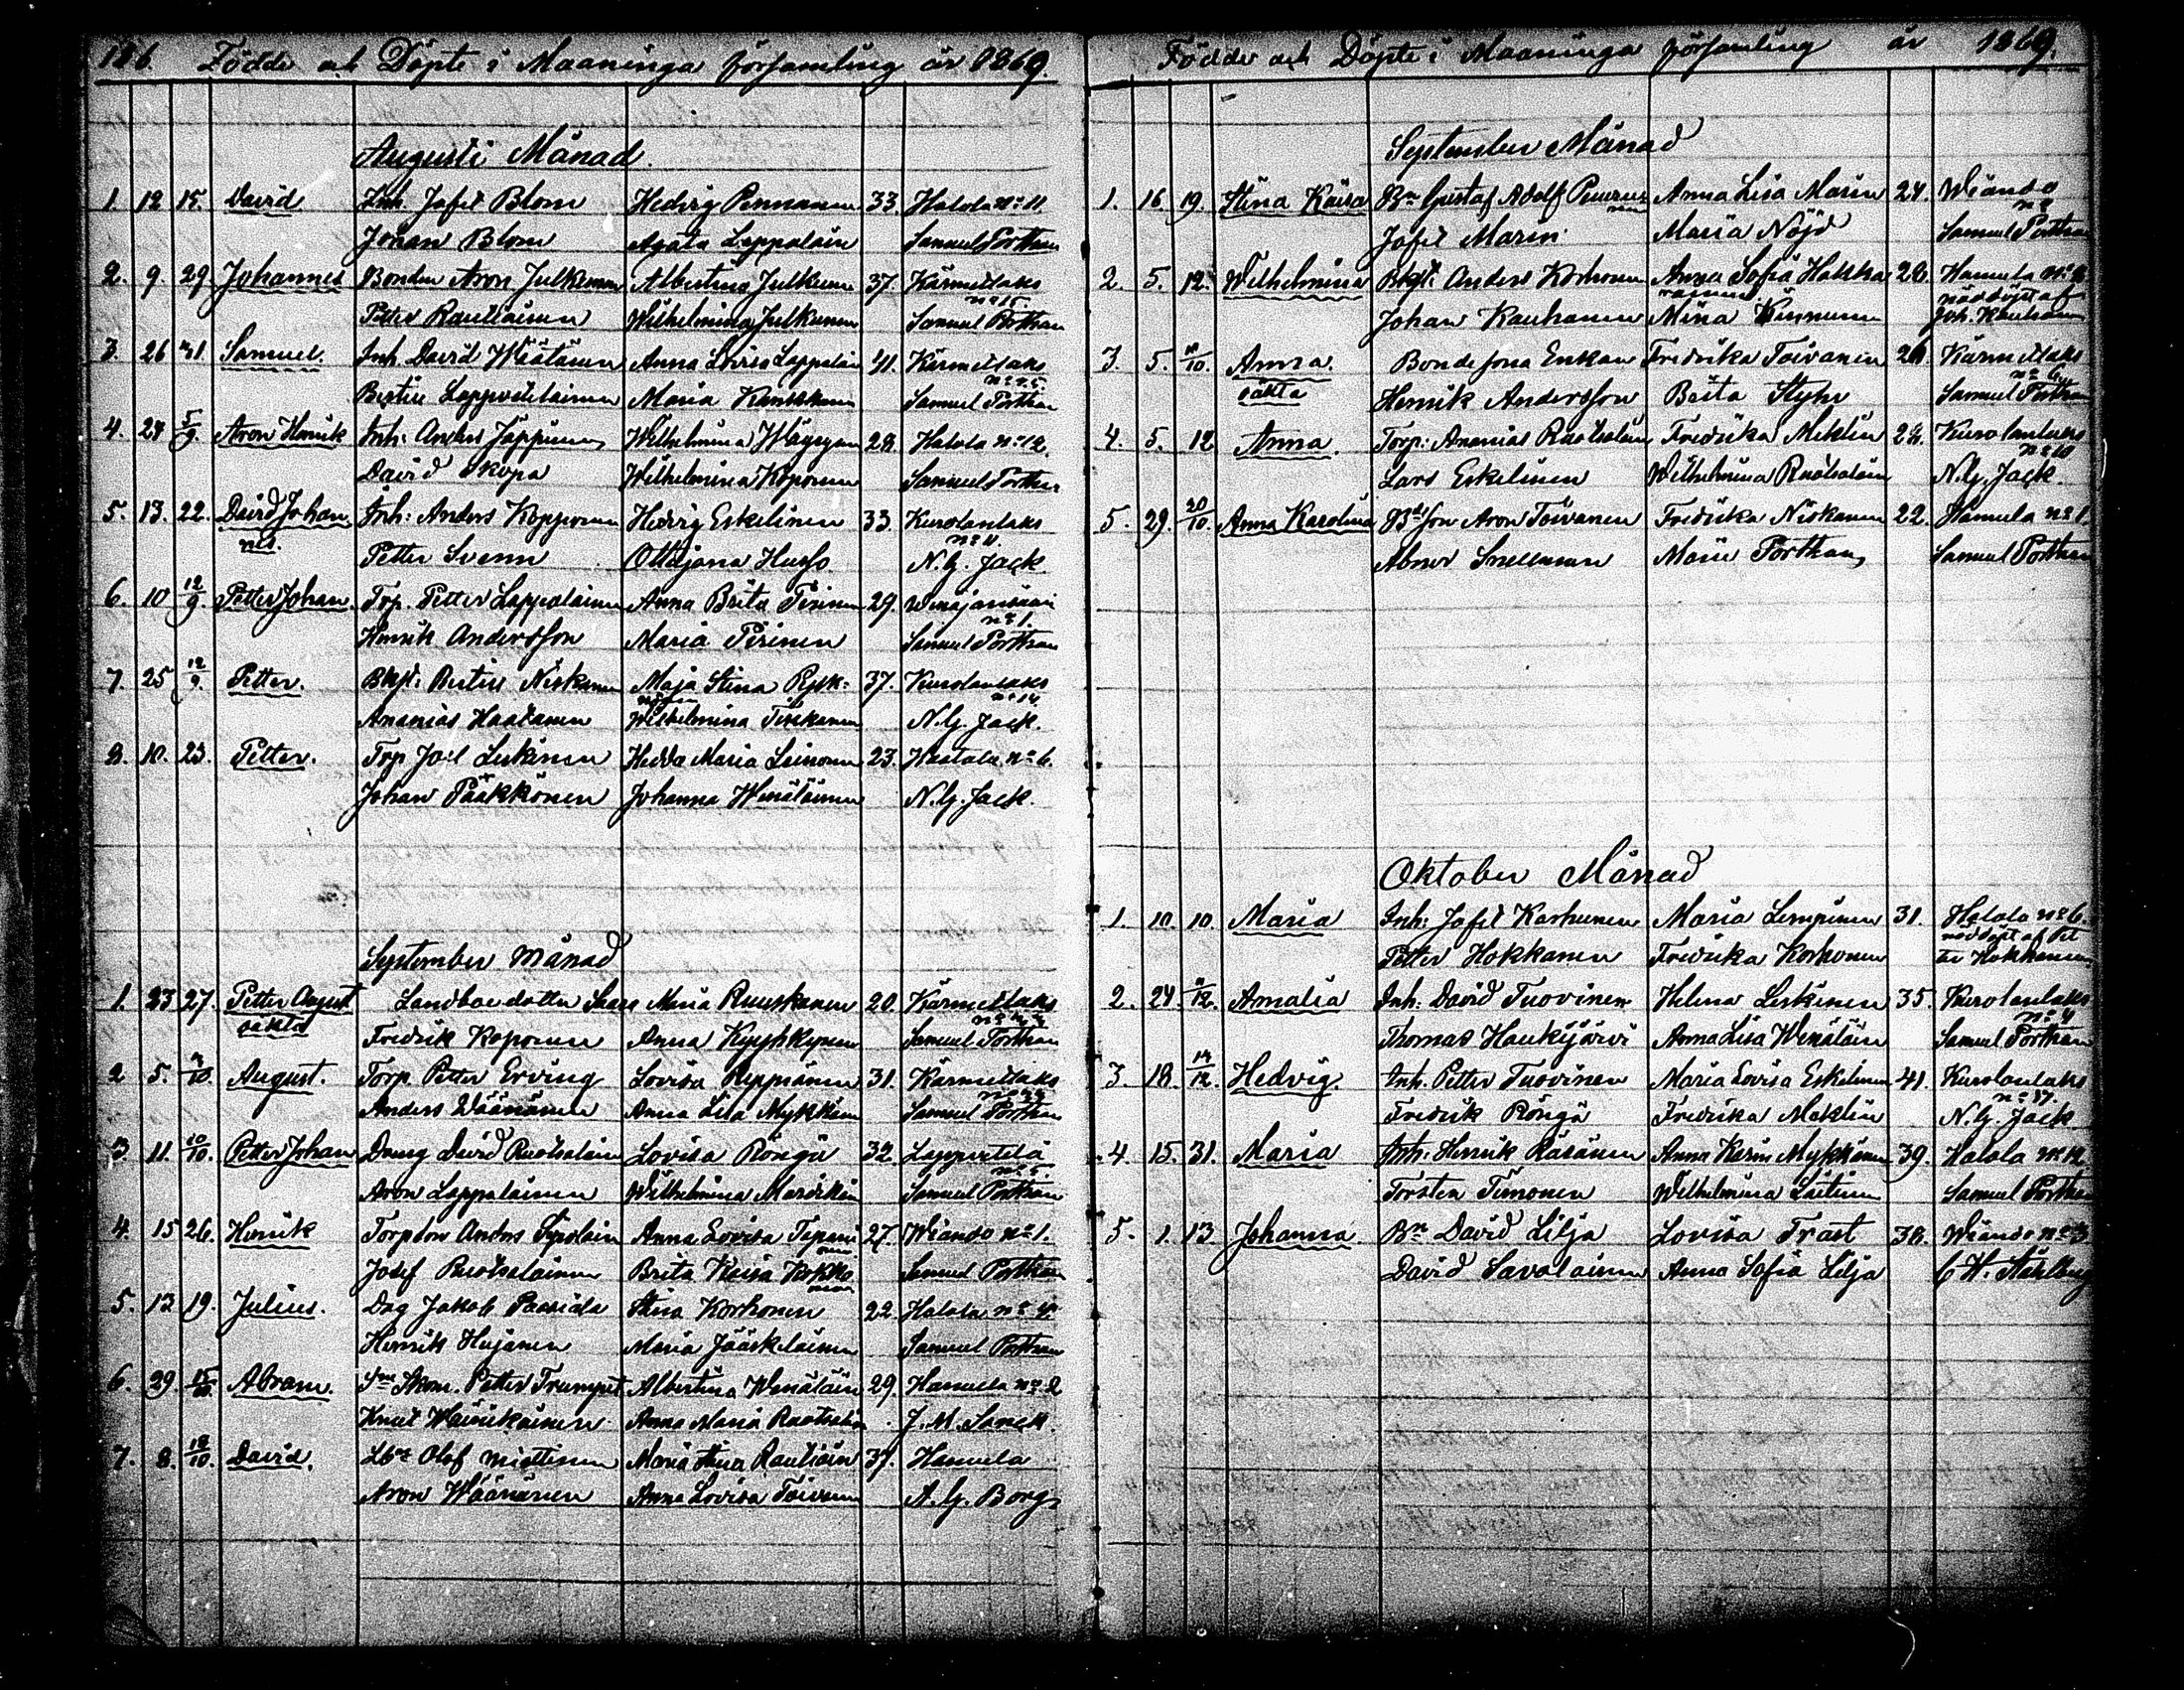 186. Födde och Döpte i Maaninga församling år 1869.
Augusti Månad.
1. 12 15. David Inh. Jafet Blom Hedvig Pennanen 33. Halola no 11.
Johan Blom Agata Lappalain Samuel Porthan
2. 9. 29 Johannes Bonden Aron Julkunen Albertina Julkunen 37. Kärmellaks no 15.
Petter Rautiainen Wilhelmina Julkunen Samuel Porthan
3. 26 31. Samuel. Inh. David Wäätäinen Anna Lovisa Lappalain 41. Kärmellaks
Bertil Lappveteläinen Maria Samuel Porthan
4. 24 5/9. Aron Henrik Inh: Anders Jäppinen Wilhelmina Väyrynen 28 Halola no 12.
David Skopa Wilhelmina Koponen Samuel Porthan
5. 13. 22. David Johannes. Inh: Anders Kopponen Hedvig Eskelinen 33. Kurolanlaks no 11.
Petter Svenn Ottiljana Husso N. G. Jack
6. 10 12/9. Petter Johan. Torp. Petter Lappalainen Anna Brita Pirinen 29. no 1.
Henrik Andersson Maria Pirinen Samuel Porthan
7. 25 12/9. Petter. Bkgt: Bertil Niskanen Maja Stina 37. Kurolanlaks no 14.
Ananias Haatanen Wilhelmina Tirkkonen N. G. Jack.
8. 10. 23. Petter. Torp Joel Leskinen Hedda Maria Leinonen 23. Haatala no 6.
Johan Pääkkönen Johanna Wenäläinen N. G. Jack.
September Månad
1. 23 27. Petter August oäkta Landboedotter Maria Ruuskanen 20. Kärmellaks
Fredrik Koponen Anna Samuel Porthan
2 5. /10. August. Torp. Petter Erving Lovisa Reppänen 31. Kärmellaks
Anders Väänänen Anna Lisa Mykkänen Samuel Porthan
3. 11. 10/10. Petter Johan Dreng David Ruotsalain Lovisa Röngä 32. Lappetelä no 5
Aron Lappalainen Wilhelmina Samuel Porthan
4. 15 26. Henrik Torpson Anders Anna Lovisa Tapaninen 27. Wiando no 1.
Josef Ruotsalainen Brita Kaisa Kokko Samuel Porthan
5. 12 19. Julius. Dag Jakob Stina Korhonen 22. Halola no 4.
Henrik Hujanen Maria Jääskeläinen Samuel Porthan
6. 29 15/10 Abram. Skom. Petter Trumpet Albertina Wenäläin 29. Hamula no 2
Knut Wäisikäinen Anna Maria Ruotsalain J. M.
7. 8. 18/10. David. Lbn Olof Miettinen Maria Stina Rautiain 37. Hamula
Aron Väänänen Anna Lovisa Toivanen A. G. Borg
Födde och Döpte i Maaninga församling år 1869.
September Månad
1. 16. 19. Stina Kaisa Bn Gustaf Adolf Anna Lisa Marin 24. Wiando
Jafet Marin Maria Nöjd Samuel Porthan
2. 5. 12. Wilhelmina Bkgt: Anders Korhonen Anna Sofia Hakkarainen 28. Hamula no nöddöpt af
Johan Kauhanen Mina Kinnunen Joh. Kauhanen
3. 5. /10. Anna. oäkta Bonde Jona Enkan Fredrika Toivanen Kärmellaks no 6.
Henrik Andersson Brita Styhr Samuel Porthan
4. 5. 12 Anna. Torp: Ananias Ruotsalain Fredrika Meklin Kurolanlaks no 10
Lars Eskelinen Wilhelmina Ruotsalain N. G. Jack.
5. 29. 20/10. Anna Karolina Bdson Aron Toivanen Fredrika Niskanen 22. Hamula no 1.
Abner Snellman Marie Porthan Samuel Porthan
Oktober Månad
1. 10. 10. Maria Inh: Jafet Karhunen Maria Lempinen 31. Halola no 6. nöddöpt af Pet
Petter Hokkanen Fredrika Korhonen ter Hokkanen
2. 24. /12. Amalia Inh: David Tuovinen Helena Leskinen 35. Kurolanlaks
Thomas Haukijärvi Anna Lisa Wenäläin Samuel Porthan
3. 18. 19/12. Hedvig Inh. Petter Tuovinen Maria Lovisa Eskelinen 41. Kurolanlaks no 17.
Fredrik Röngä Fredrika Meklin N. G. Jack.
4. 15. 31. Maria Inh: Henrik Räsänen Anna Karin Mykkänen 39. Halola no 12
Torsten Timonen Wilhelmina Laitinen Samuel Porthan
5. 1. 13 Johanna. Bn David Lilja Lovisa Trast 38. Wiando no 3
David Savolainen Anna Sofia Lilja C. H. Ståhlberg